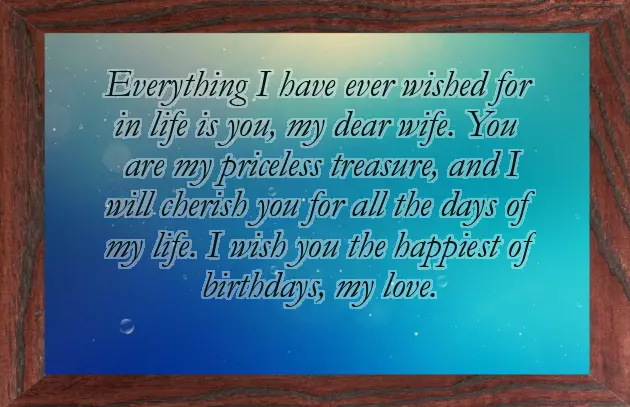 Everything I have ever wished for
in life is you, my dear wife. You
are my priceless treasure, and I
will cherish you for all the days of
my life. I wish you the happiest of
birthdays, my love.